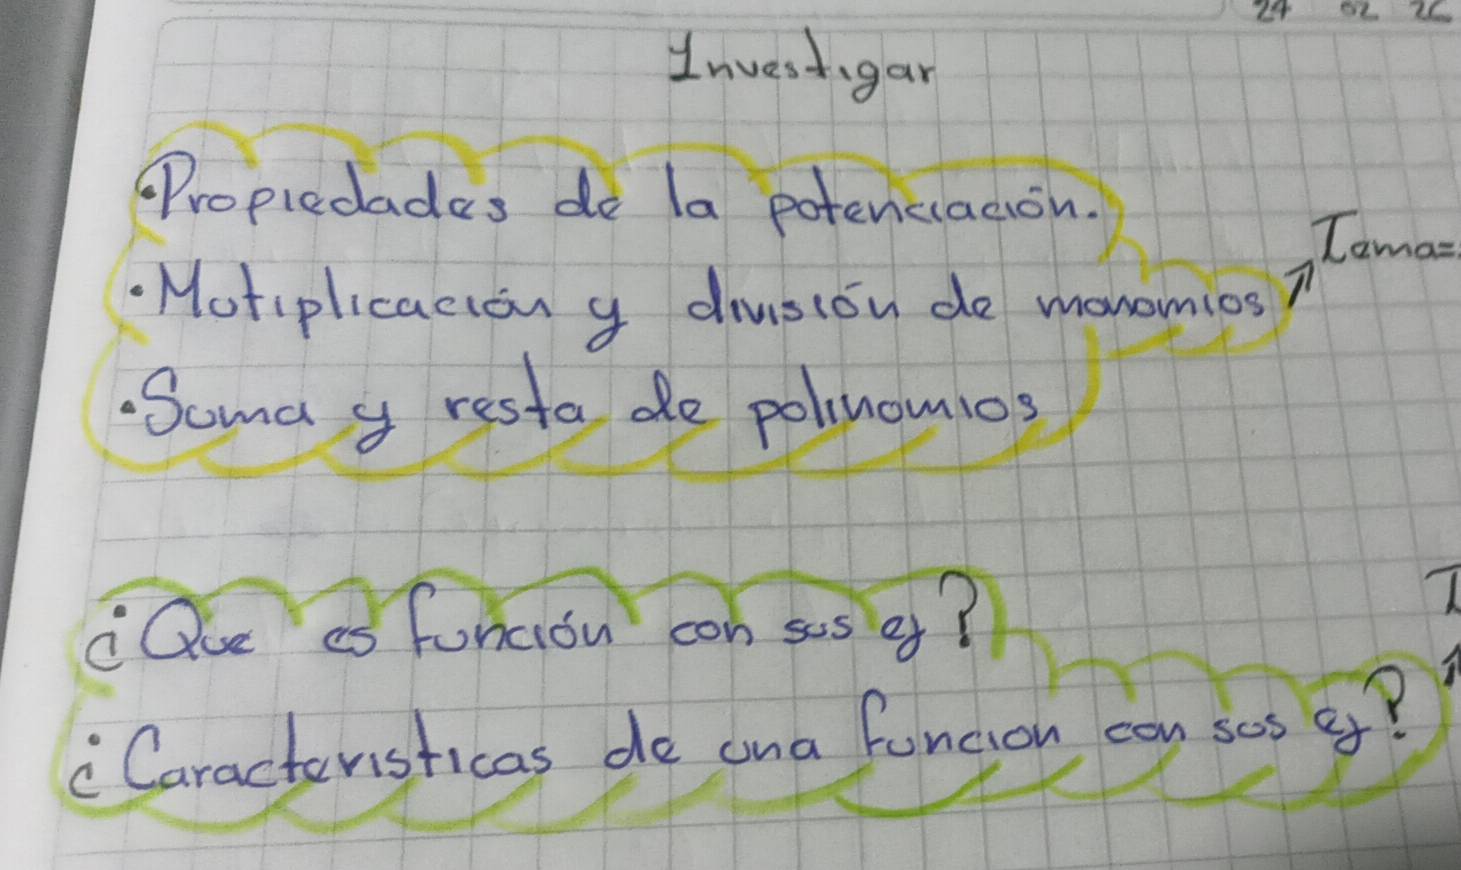 24 02 26
Investigar
•Propiedades de la potenciación.
•Motiplicación y división de monomios
Tema=
•Suma y resta de polinomios
¿Que es función con sus ej?
¿Caracteristicas de una funcion con sus ej?